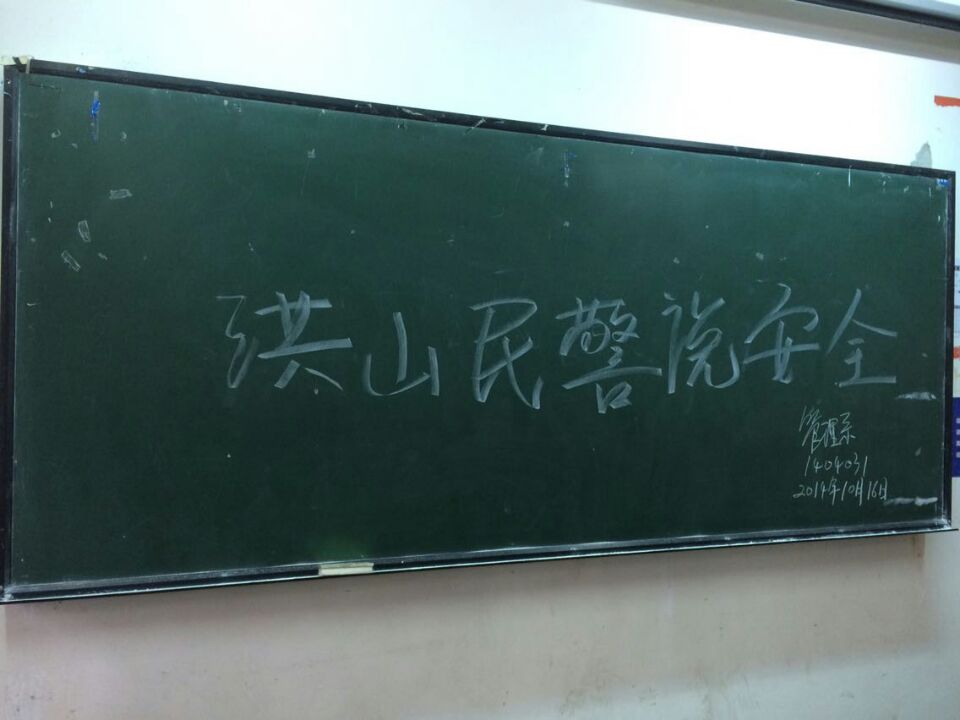 洪山民警说安全
管理系
1404031
2014年10月16日